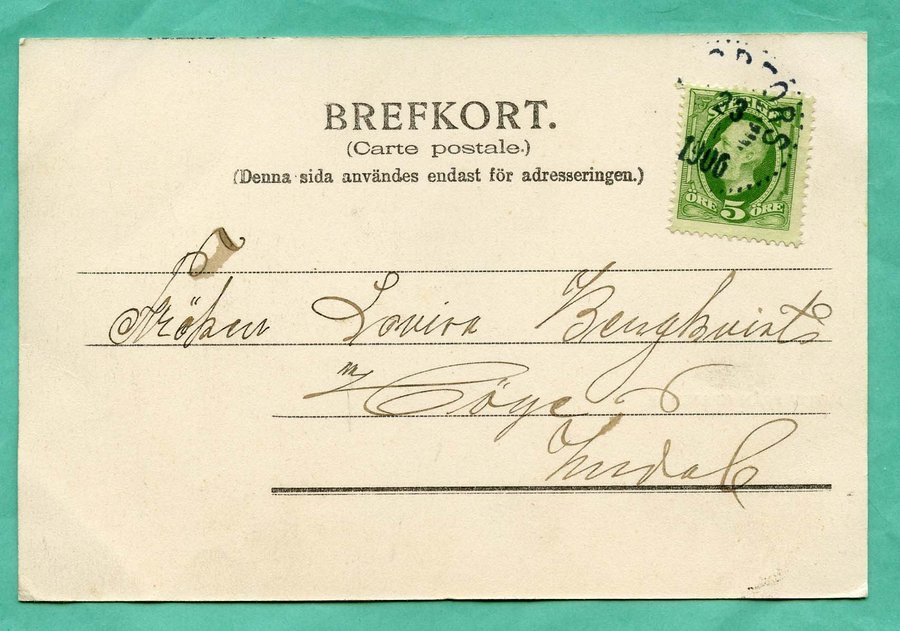 BREFKORT.
(Carte postale.)
(Denna sida användes endast för adresseringen.)
23
1906
ÖRE 5 ÖRE
Fröken Lovisa Bergkvist
Indal